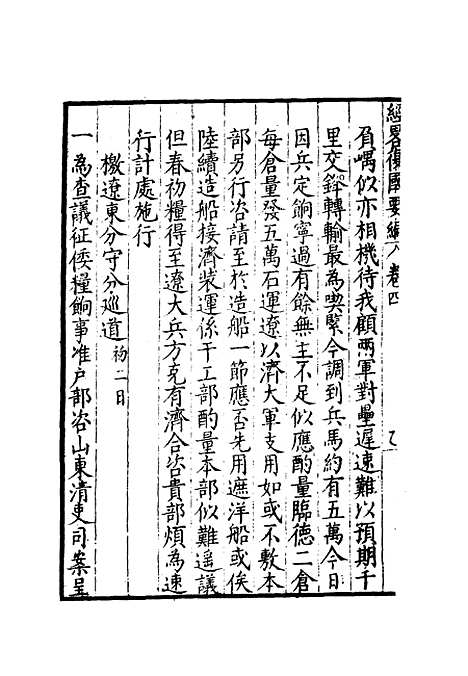 經畧復國要編 卷四
負嵎似亦相機待我顧兩軍對壘遲速難以預期千
里交鋒轉輸最為喫緊今調到兵馬約有五萬今日
因兵定餉寧過有餘無主不足似應酌量臨德二倉
每倉量發五萬石運遼以濟大軍支用如或不敷本
部另行咨請至於造船一節應否先用遮洋船或俟
陸續造船接濟裝運係干工部酌量本部似難遥議
但春初糧得至遼大兵方克有濟合咨貴部煩為速
行計處施行
檄遼東分守分巡道 初二日
一為查議征倭糧餉事准户部咨山東清吏司案呈